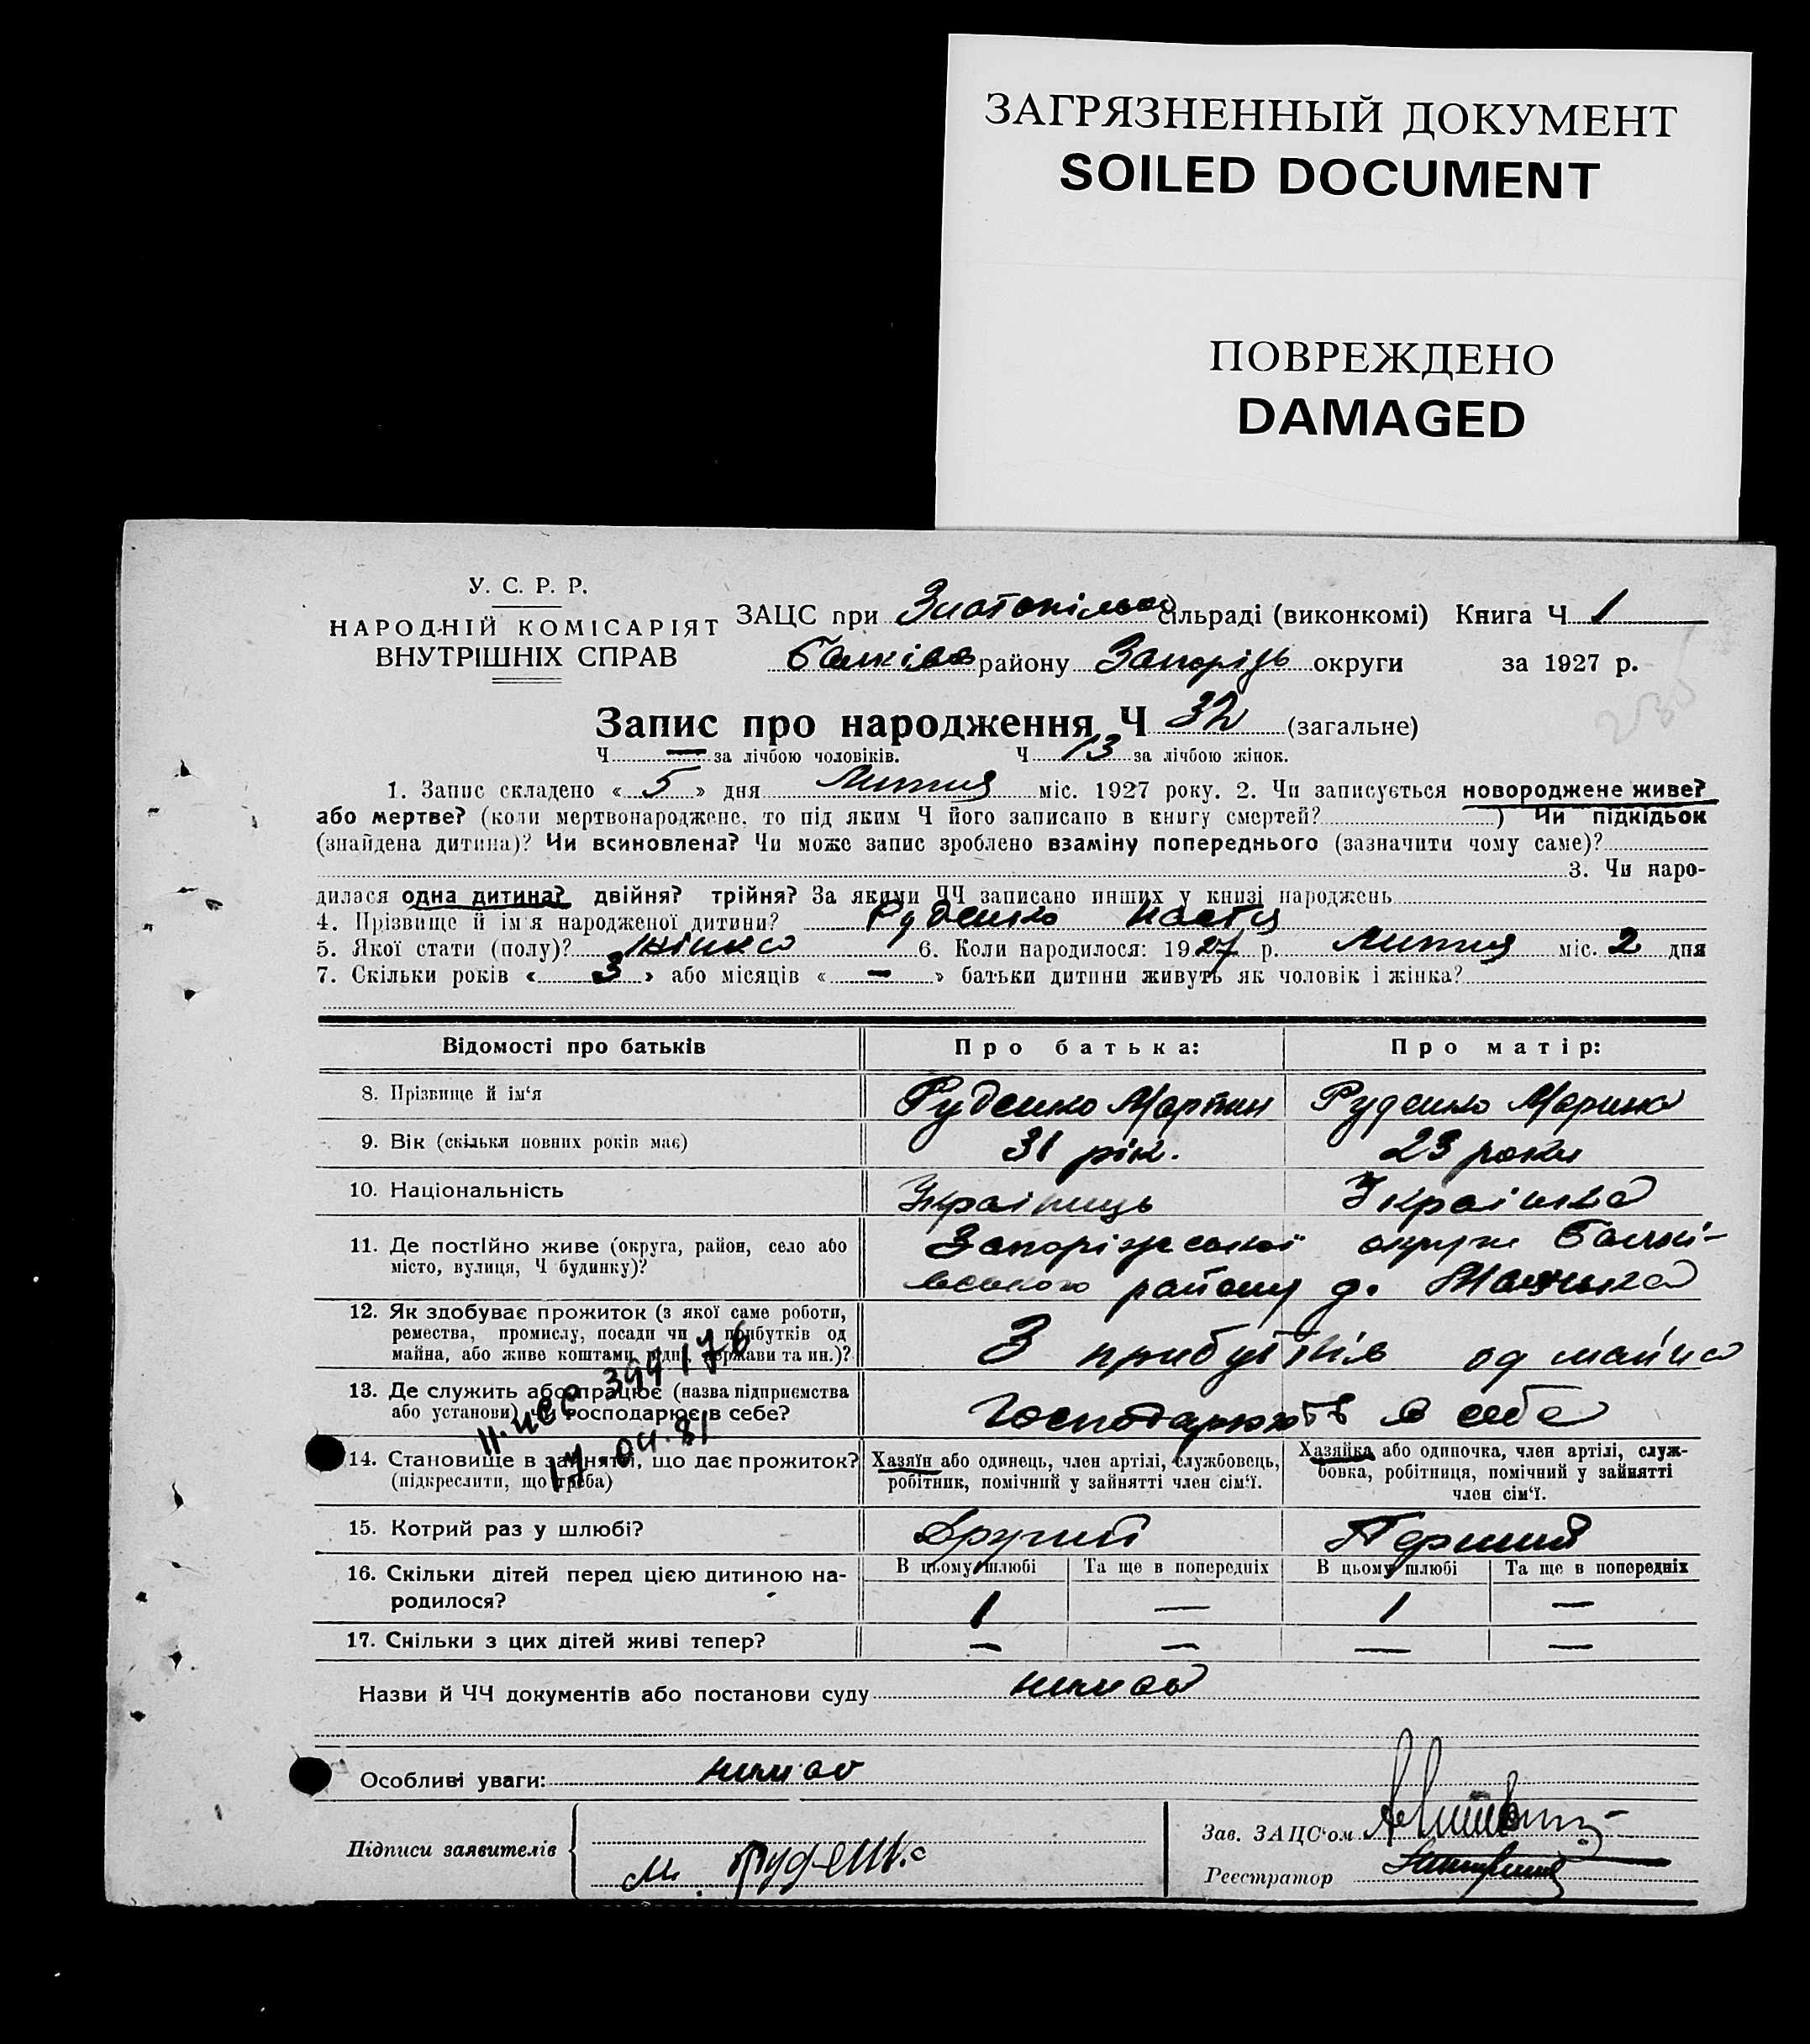 ЗАГРЯЗНЕННЫЙ ДОКУМЕНТ
SOILED DOCUMENT
ПОВРЕЖДЕНО
DAMAGED
У. С. Р. Р.
НАРОДНІЙ КОМІСАРІЯТ
ВНУТРІШНІХ СПРАВ
ЗАЦС при сільраді (виконкомі) Книга Ч 1
району Запорізь округи за 1927 р.
Запис про народження Ч 32 (загальне)
Ч — за лічбою чоловіків. Ч 13 за лічбою жінок.
1. Запис складено « 5 » дня Лютия міс. 1927 року. 2. Чи записується новороджене живе?
або мертве? (коли мертвонароджене, то під яким Ч його записано в книгу смертей? ) Чи підкідьок
(знайдена дитина)? Чи всиновлена? Чи може запис зроблено взаміну попереднього (зазначити чому саме)?
3. Чи наро-
дилася одна дитина? двійня? трійня? За якими ЧЧ записано инших у книзі народжень
4. Прізвище й ім'я народженої дитини? Руденко Настя
5. Якої стати (полу)? жінка 6. Коли народилося: 1927 р. Лютия міс. 2 дня
7. Скільки років « 3 » або місяців « — » батьки дитини живуть як чоловік і жінка?
Відомості про батьків Про батька: Про матір:
8. Прізвище й ім'я Руденко Мартин Руденко Марина
9. Вік (скільки повних років має) 31 рік. 23 роки
10. Національність Українець Українка
11. Де постійно живе (округа, район, село або Запоріжської округи Балкі-
місто, вулиця, Ч будинку)? вського району д.
12. Як здобуває прожиток (з якої саме роботи,
ремества, промислу, посади чи прибутків од З прибутків од майна
майна, або живе коштами рідні, держави та ин.)?
13. Де служить або працює (назва підприємства
або установи) чи господарює в себе? Господарюють в себе
399176
17.04.81
14. Становище в занятті, що дає прожиток? Хазяїн або одинець, член артілі, службовець, Хазяйка або одиночка, член артілі, служ-
(підкреслити, що треба) робітник, помічний у зайнятті член сім'ї. бовка, робітниця, помічний у зайнятті
член сім'ї.
15. Котрий раз у шлюбі? Другий Перший
16. Скільки дітей перед цією дитиною на- В цьому шлюбі Та ще в попередніх В цьому шлюбі Та ще в попередніх
родилося? 1 — 1 —
17. Скільки з цих дітей живі тепер? — — — —
Назви й ЧЧ документів або постанови суду нима
Особливі уваги: нима
Підписи заявителів М. Руденко
Зав. ЗАЦС'ом
Реєстратор